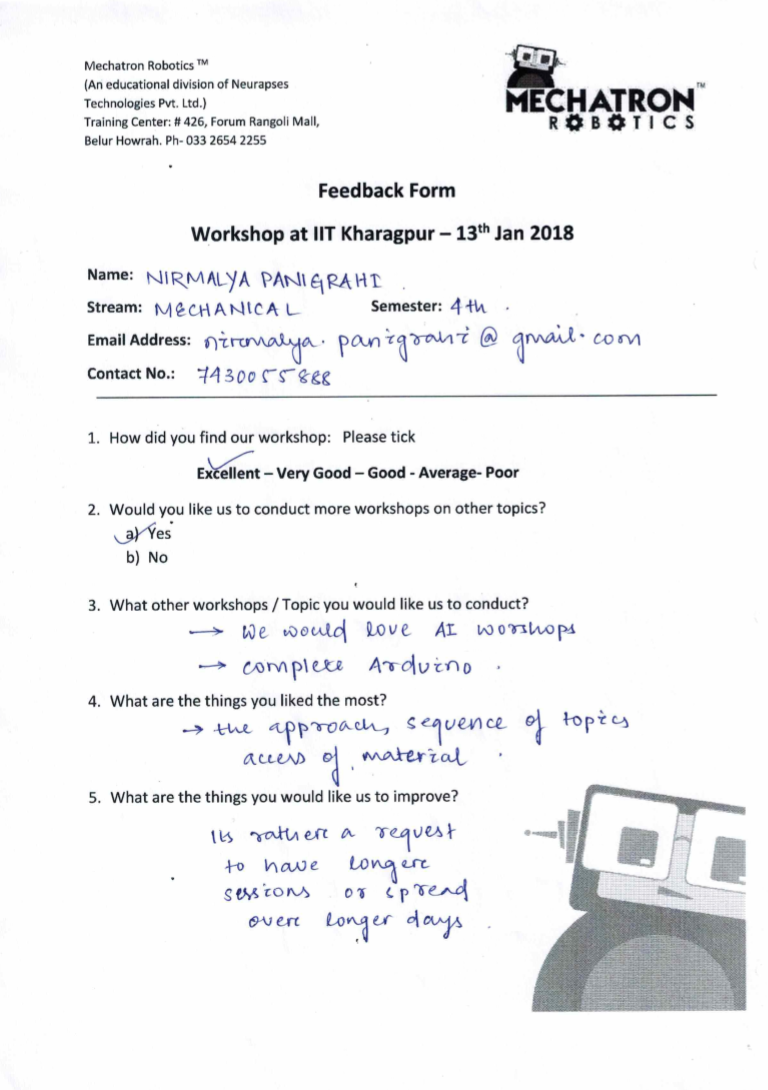 Mechatron Robotics ™
(An educational division of Neurapses
Technologies Pvt. Ltd.)
Training Center: # 426, Forum Rangoli Mall,
Belur Howrah. Ph- 033 2654 2255
MECHATRON™
ROBOTICS
Feedback Form
Workshop at IIT Kharagpur – 13th Jan 2018
Name: NIRMALYA PANIGRAHI
Stream: MECHANICAL Semester: 4th .
Email Address: nirmalya.panigrahi@gmail.com
Contact No.: 7430055888
1. How did you find our workshop: Please tick
Excellent – Very Good – Good - Average- Poor
2. Would you like us to conduct more workshops on other topics?
a) Yes
b) No
3. What other workshops / Topic you would like us to conduct?
→ We would love AI worshops
→ complete Arduino .
4. What are the things you liked the most?
→ the approach, sequence of topics
access of material .
5. What are the things you would like us to improve?
Its rather a request
to have longer
sessions or spread
over longer days .